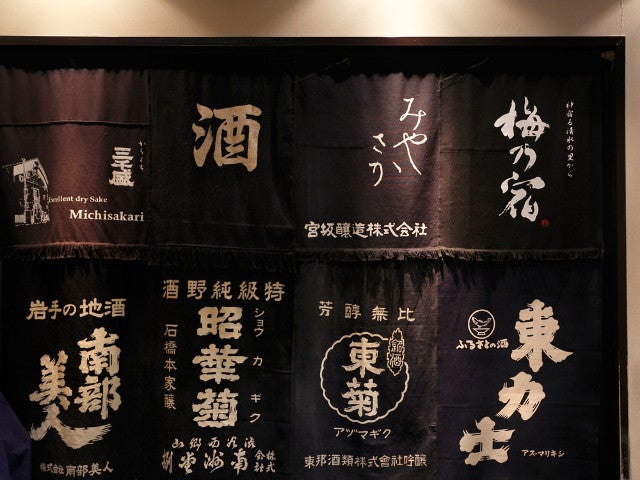 からくち
三千盛
Excellent dry Sake
Michisakari
酒
みやさか
宮坂醸造株式会社
神宿る清水の里から
梅乃宿
岩手の地酒
南部
美人
株式会社南部美人
酒野純級特
ショウカギク
昭華菊
石橋本家醸
株式
会社
芳醇無比
東菊
アヅマギク
東邦酒類株式會社吟醸
ふるさとの酒
東力士
アズマリキシ